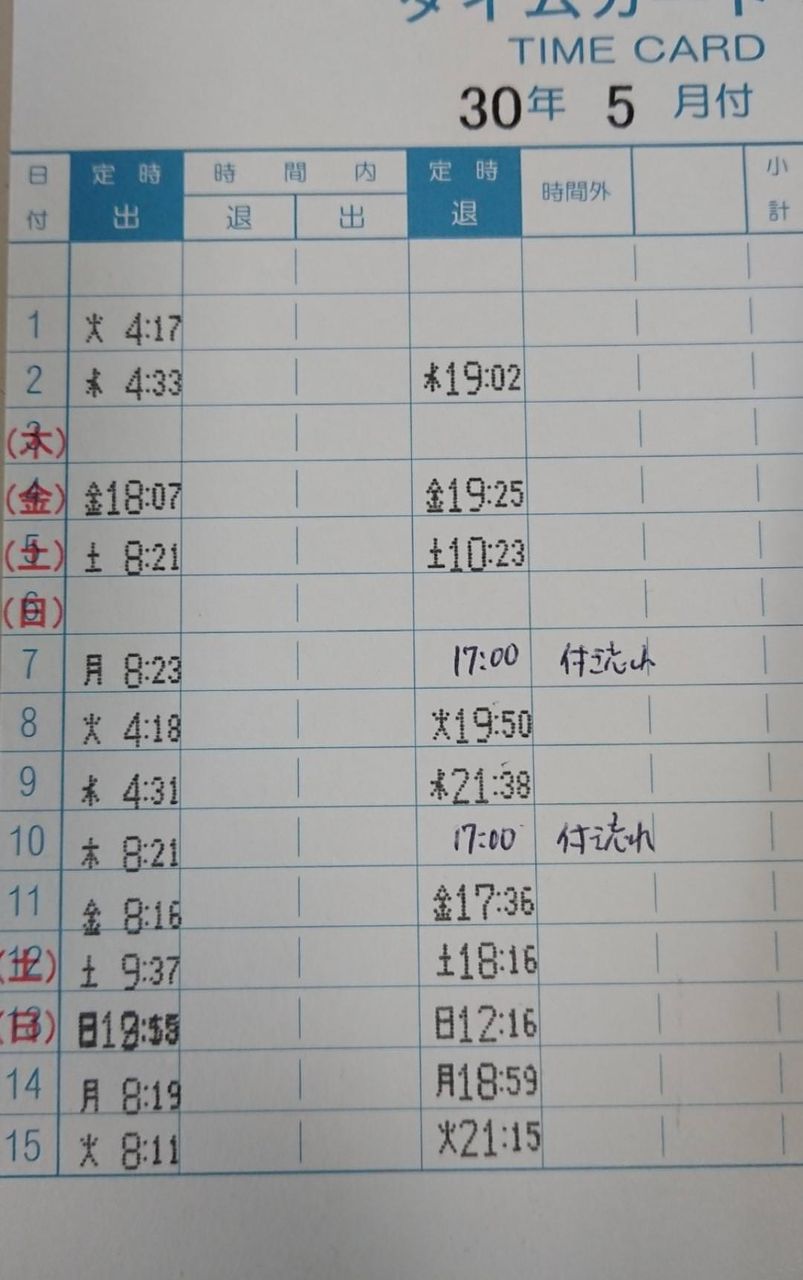 タイムカード
TIME CARD
30年 5 月付
日付 定時出 時間内 退 出 定時退 時間外 小計
1 火 4:17
2 水 4:33 水19:02
3 (木)
4 (金) 金18:07 金19:25
5 (土) 土 8:21 土10:23
6 (日)
7 月 8:23 17:00 付忘れ
8 火 4:18 火19:50
9 水 4:31 水21:38
10 木 8:21 17:00 付忘れ
11 金 8:16 金17:36
12 (土) 土 9:37 土18:16
13 (日) 日 日12:16
14 月 8:19 月18:59
15 火 8:11 火21:15